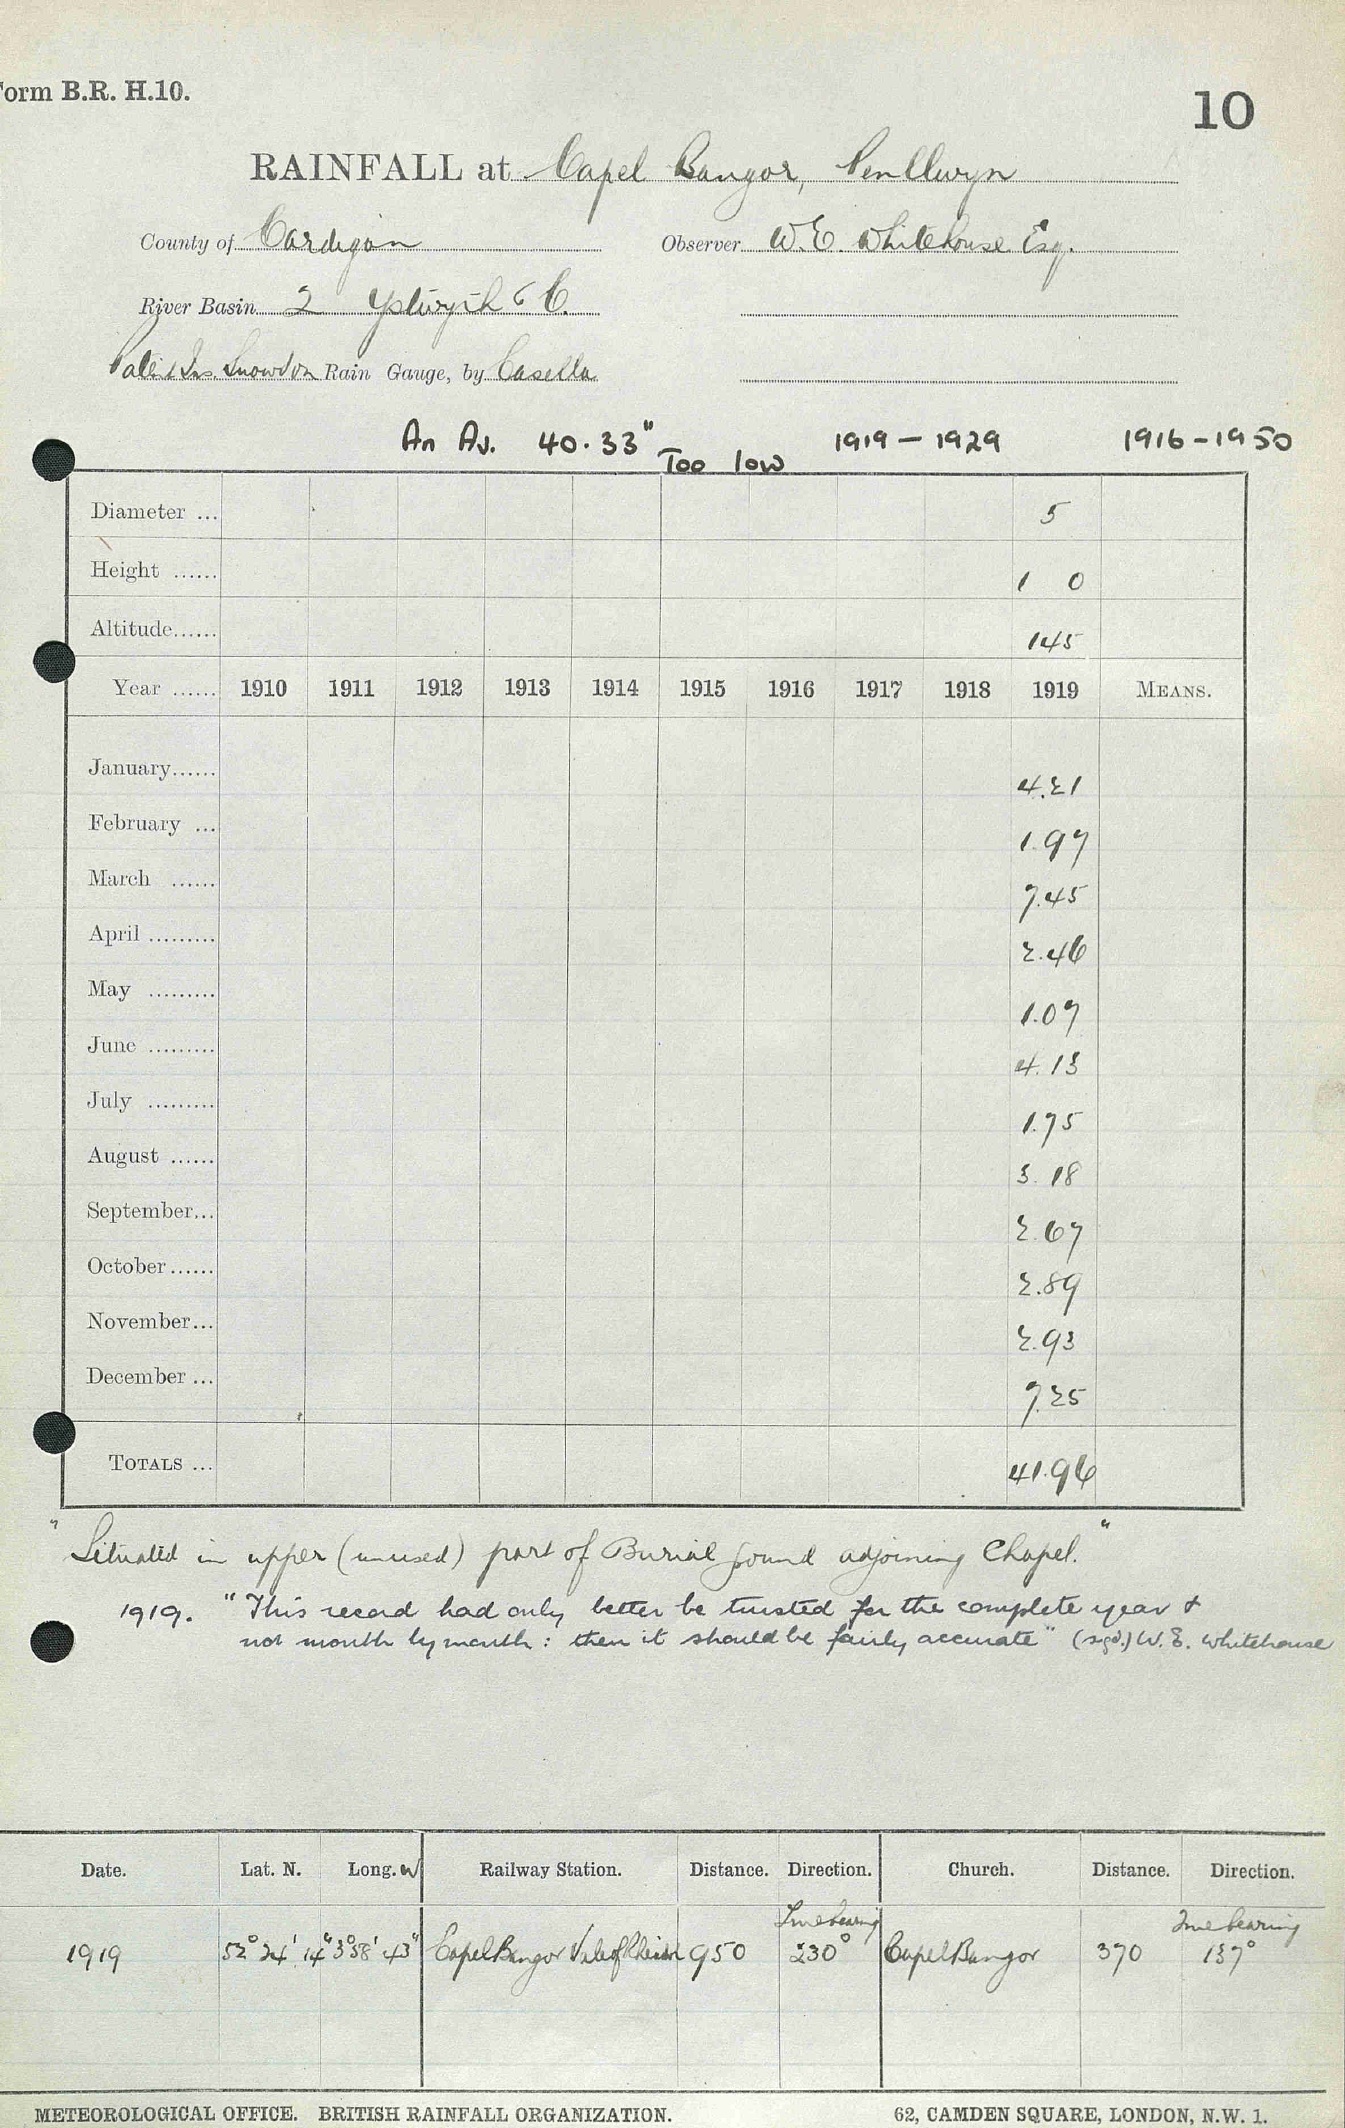 Form B.R. H.10.
10
RAINFALL at Capel Bangor, Penllwyn
County of Cardigan Observer W.E. Whitehouse Esq.
River Basin 2 Ystwyth & C.
Snowdon Rain Gauge, by Casella
An Av. 40.33" Too low 1919 - 1929 1916 - 1950
Diameter ... 5
Height ...... 1 0
Altitude...... 145
Year ...... 1910 1911 1912 1913 1914 1915 1916 1917 1918 1919 MEANS.
January...... 4.21
February ... 1.97
March ...... 7.45
April ......... 2.46
May ......... 1.07
June ......... 4.13
July ......... 1.75
August ...... 3.18
September... 2.67
October...... 2.89
November... 2.93
December ... 7.25
TOTALS ... 41.96
"Situated in upper (unused) part of Burial ground adjoining Chapel."
1919. "This record had only better be trusted for the complete year &
not month by month: then it should be fairly accurate" (sgd.) W.E. Whitehouse
Date. Lat. N. Long. W Railway Station. Distance. Direction. Church. Distance. Direction.
True bearing True bearing
1919 52° 24' 14" 3° 58' 43" Capel Bangor Vale of Rheidol 950 230° Capel Bangor 370 137°
METEOROLOGICAL OFFICE. BRITISH RAINFALL ORGANIZATION. 62, CAMDEN SQUARE, LONDON, N.W. 1.